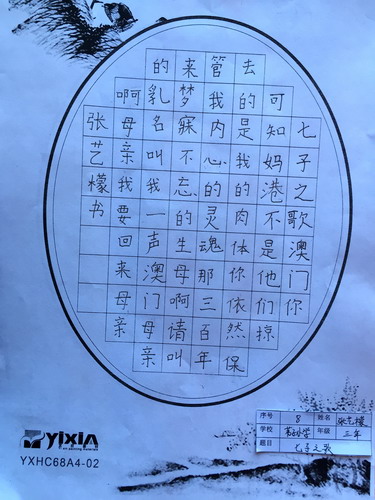 七子之歌澳门你
可知妈港不是他们掠
去的是我的肉体你依然保
管我内心的灵魂那三百年
来梦寐不忘的生母啊请叫
的乳名叫我一声澳门母亲
啊母亲我要回来母亲
张艺檬书
yixin
YXHC68A4-02
序号 8 姓名 张艺檬
学校 小学 年级 三年
题目 七子之歌